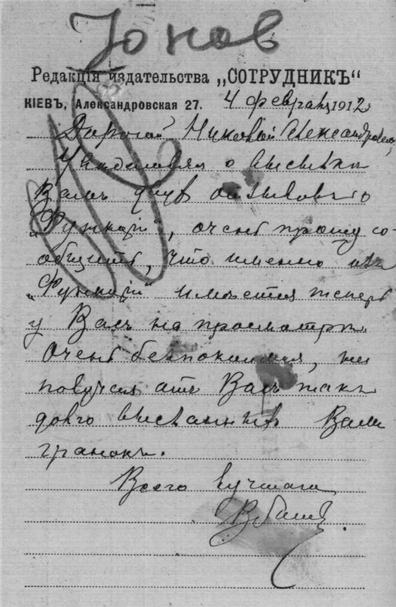 Зонов
Редакція издательства „СОТРУДНИКЪ“
КІЕВЪ, Александровская 27. 4 февраля 1912
Дорогой Александровичъ,
о высылкѣ
Вамъ
„ “, очень прошу со-
общить, что именно изъ
„ “ имѣется теперь
у Васъ на просмотрѣ.
Очень безпокоимся, не
получая отъ Васъ такъ
долго высланныхъ Вамъ
гранокъ.
Всего лучшаго